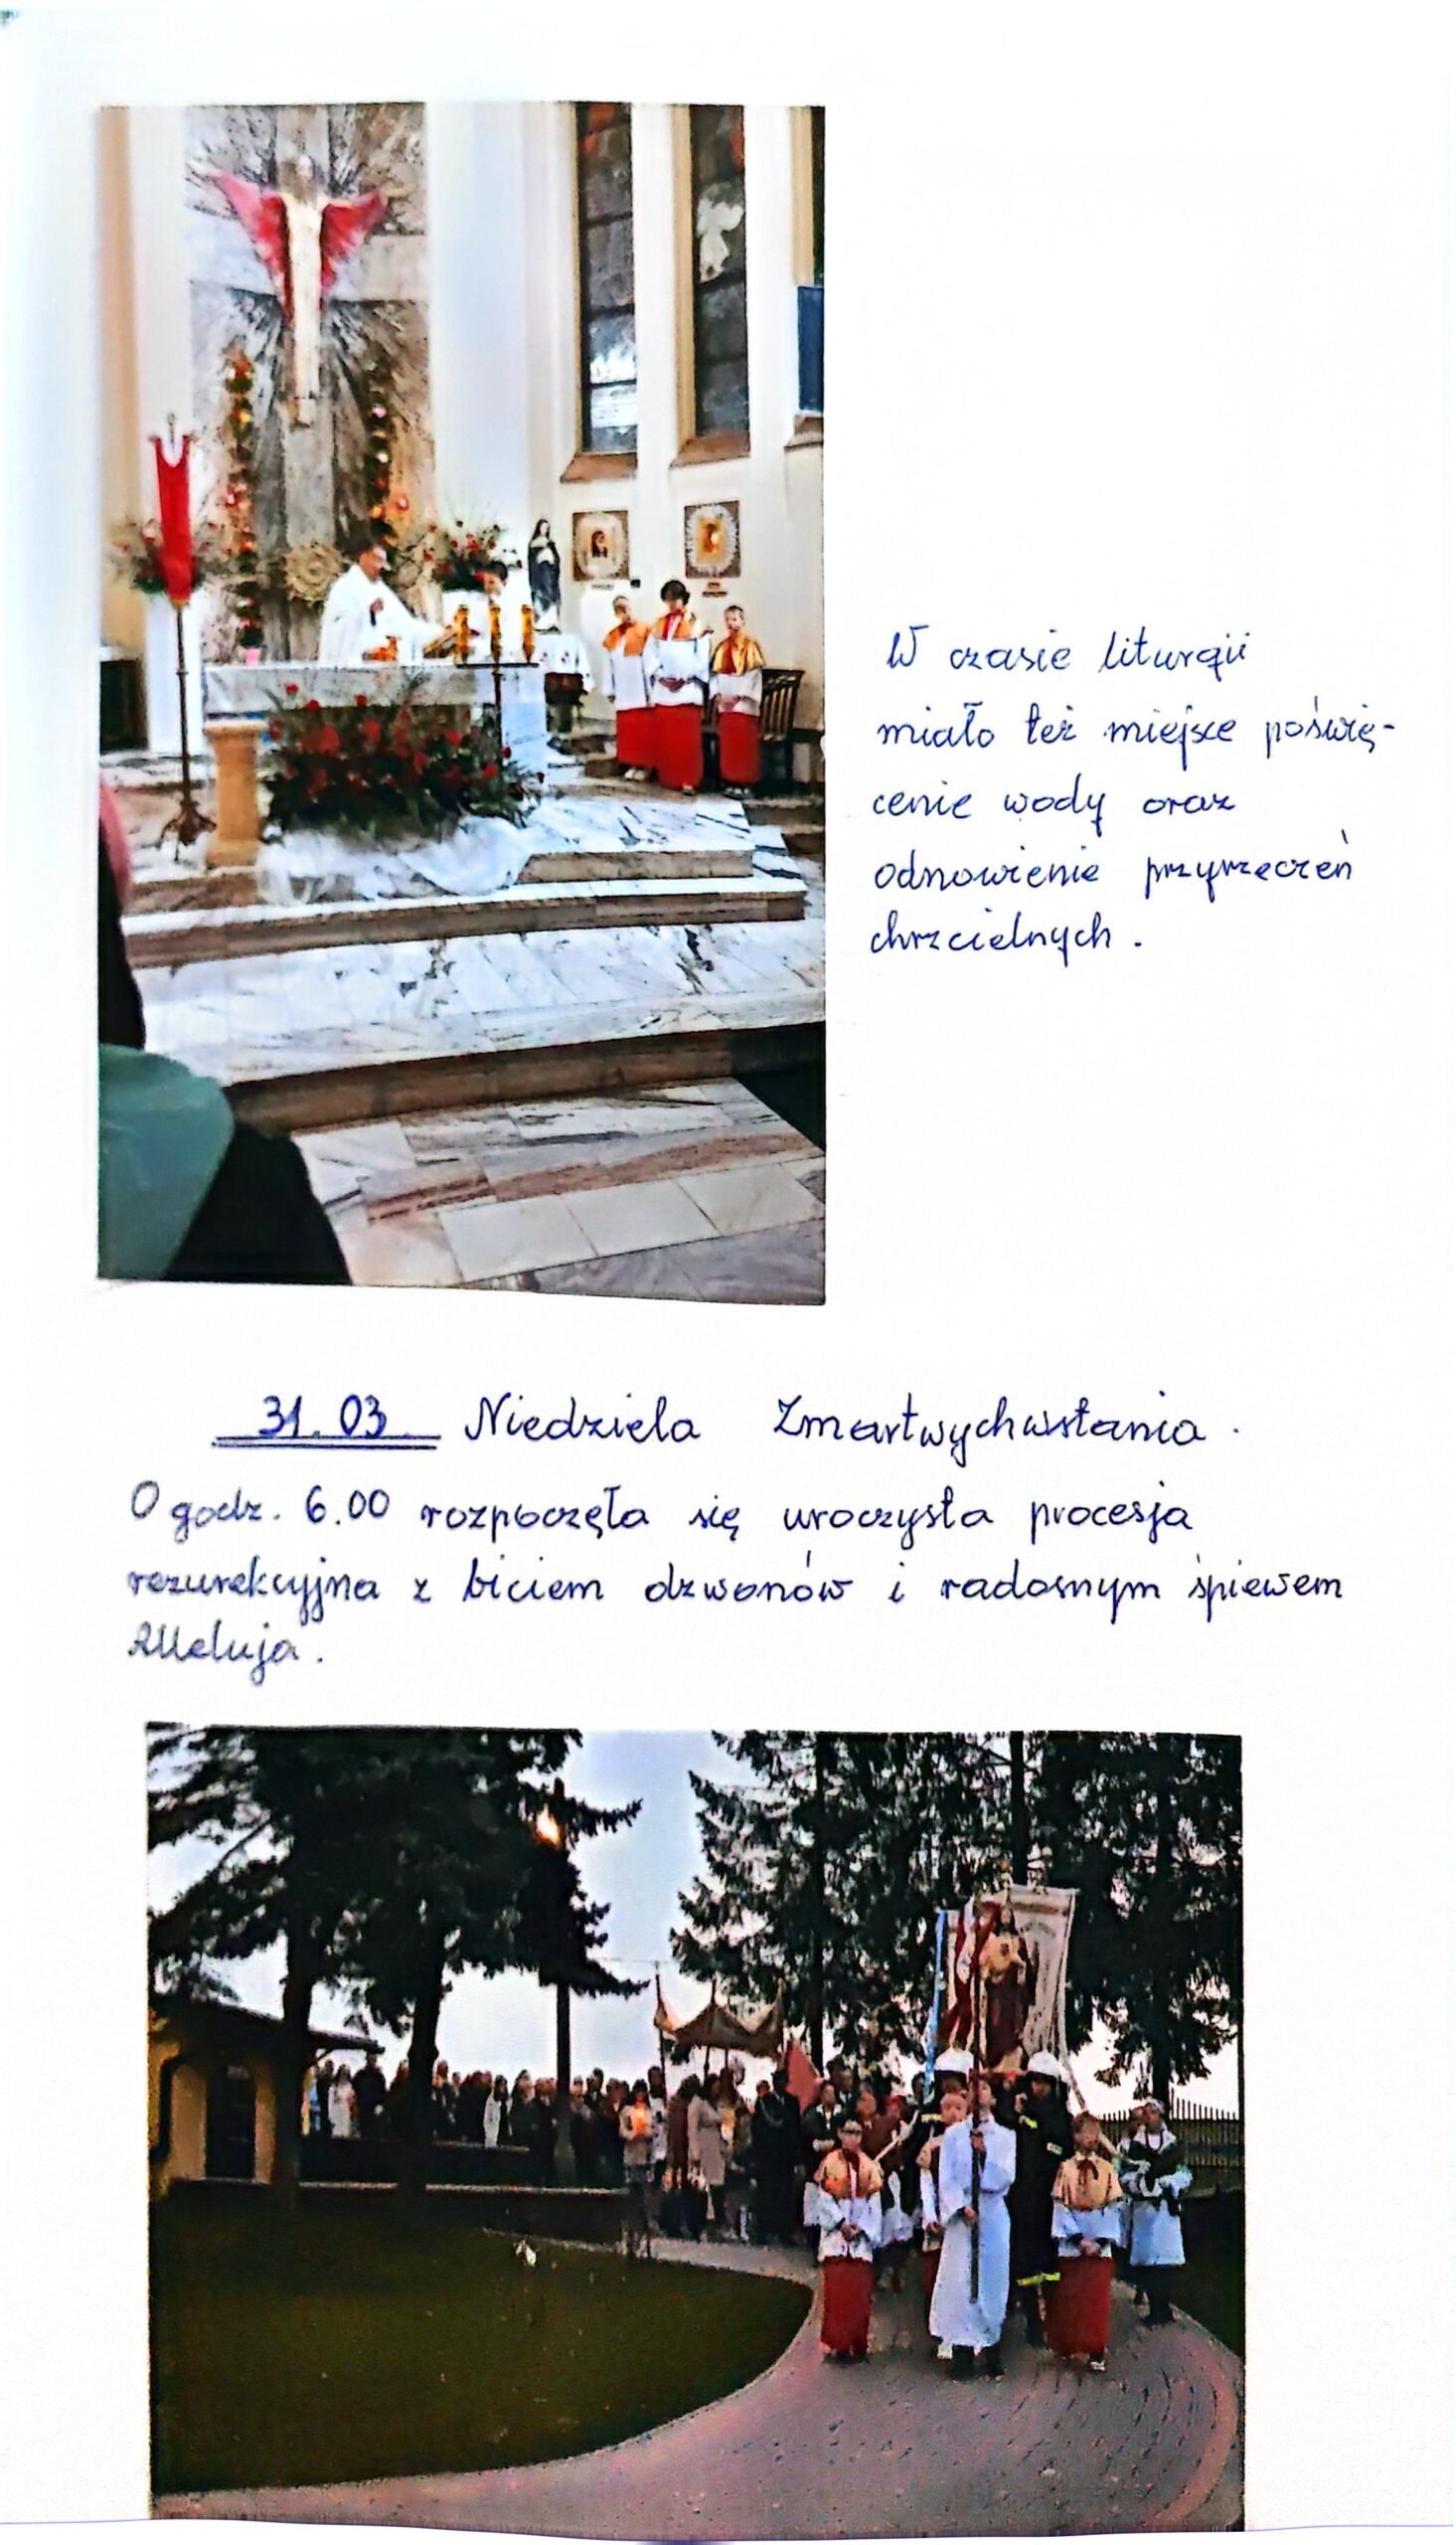 W czasie liturgii
miało też miejsce poświę-
cenie wody oraz
odnowienie przyrzeczeń
chrzcielnych.
31.03 Niedziela Zmartwychwstania.
O godz. 6.00 rozpoczęła się uroczysta procesja
rezurekcyjna z biciem dzwonów i radosnym śpiewem
Alleluja.